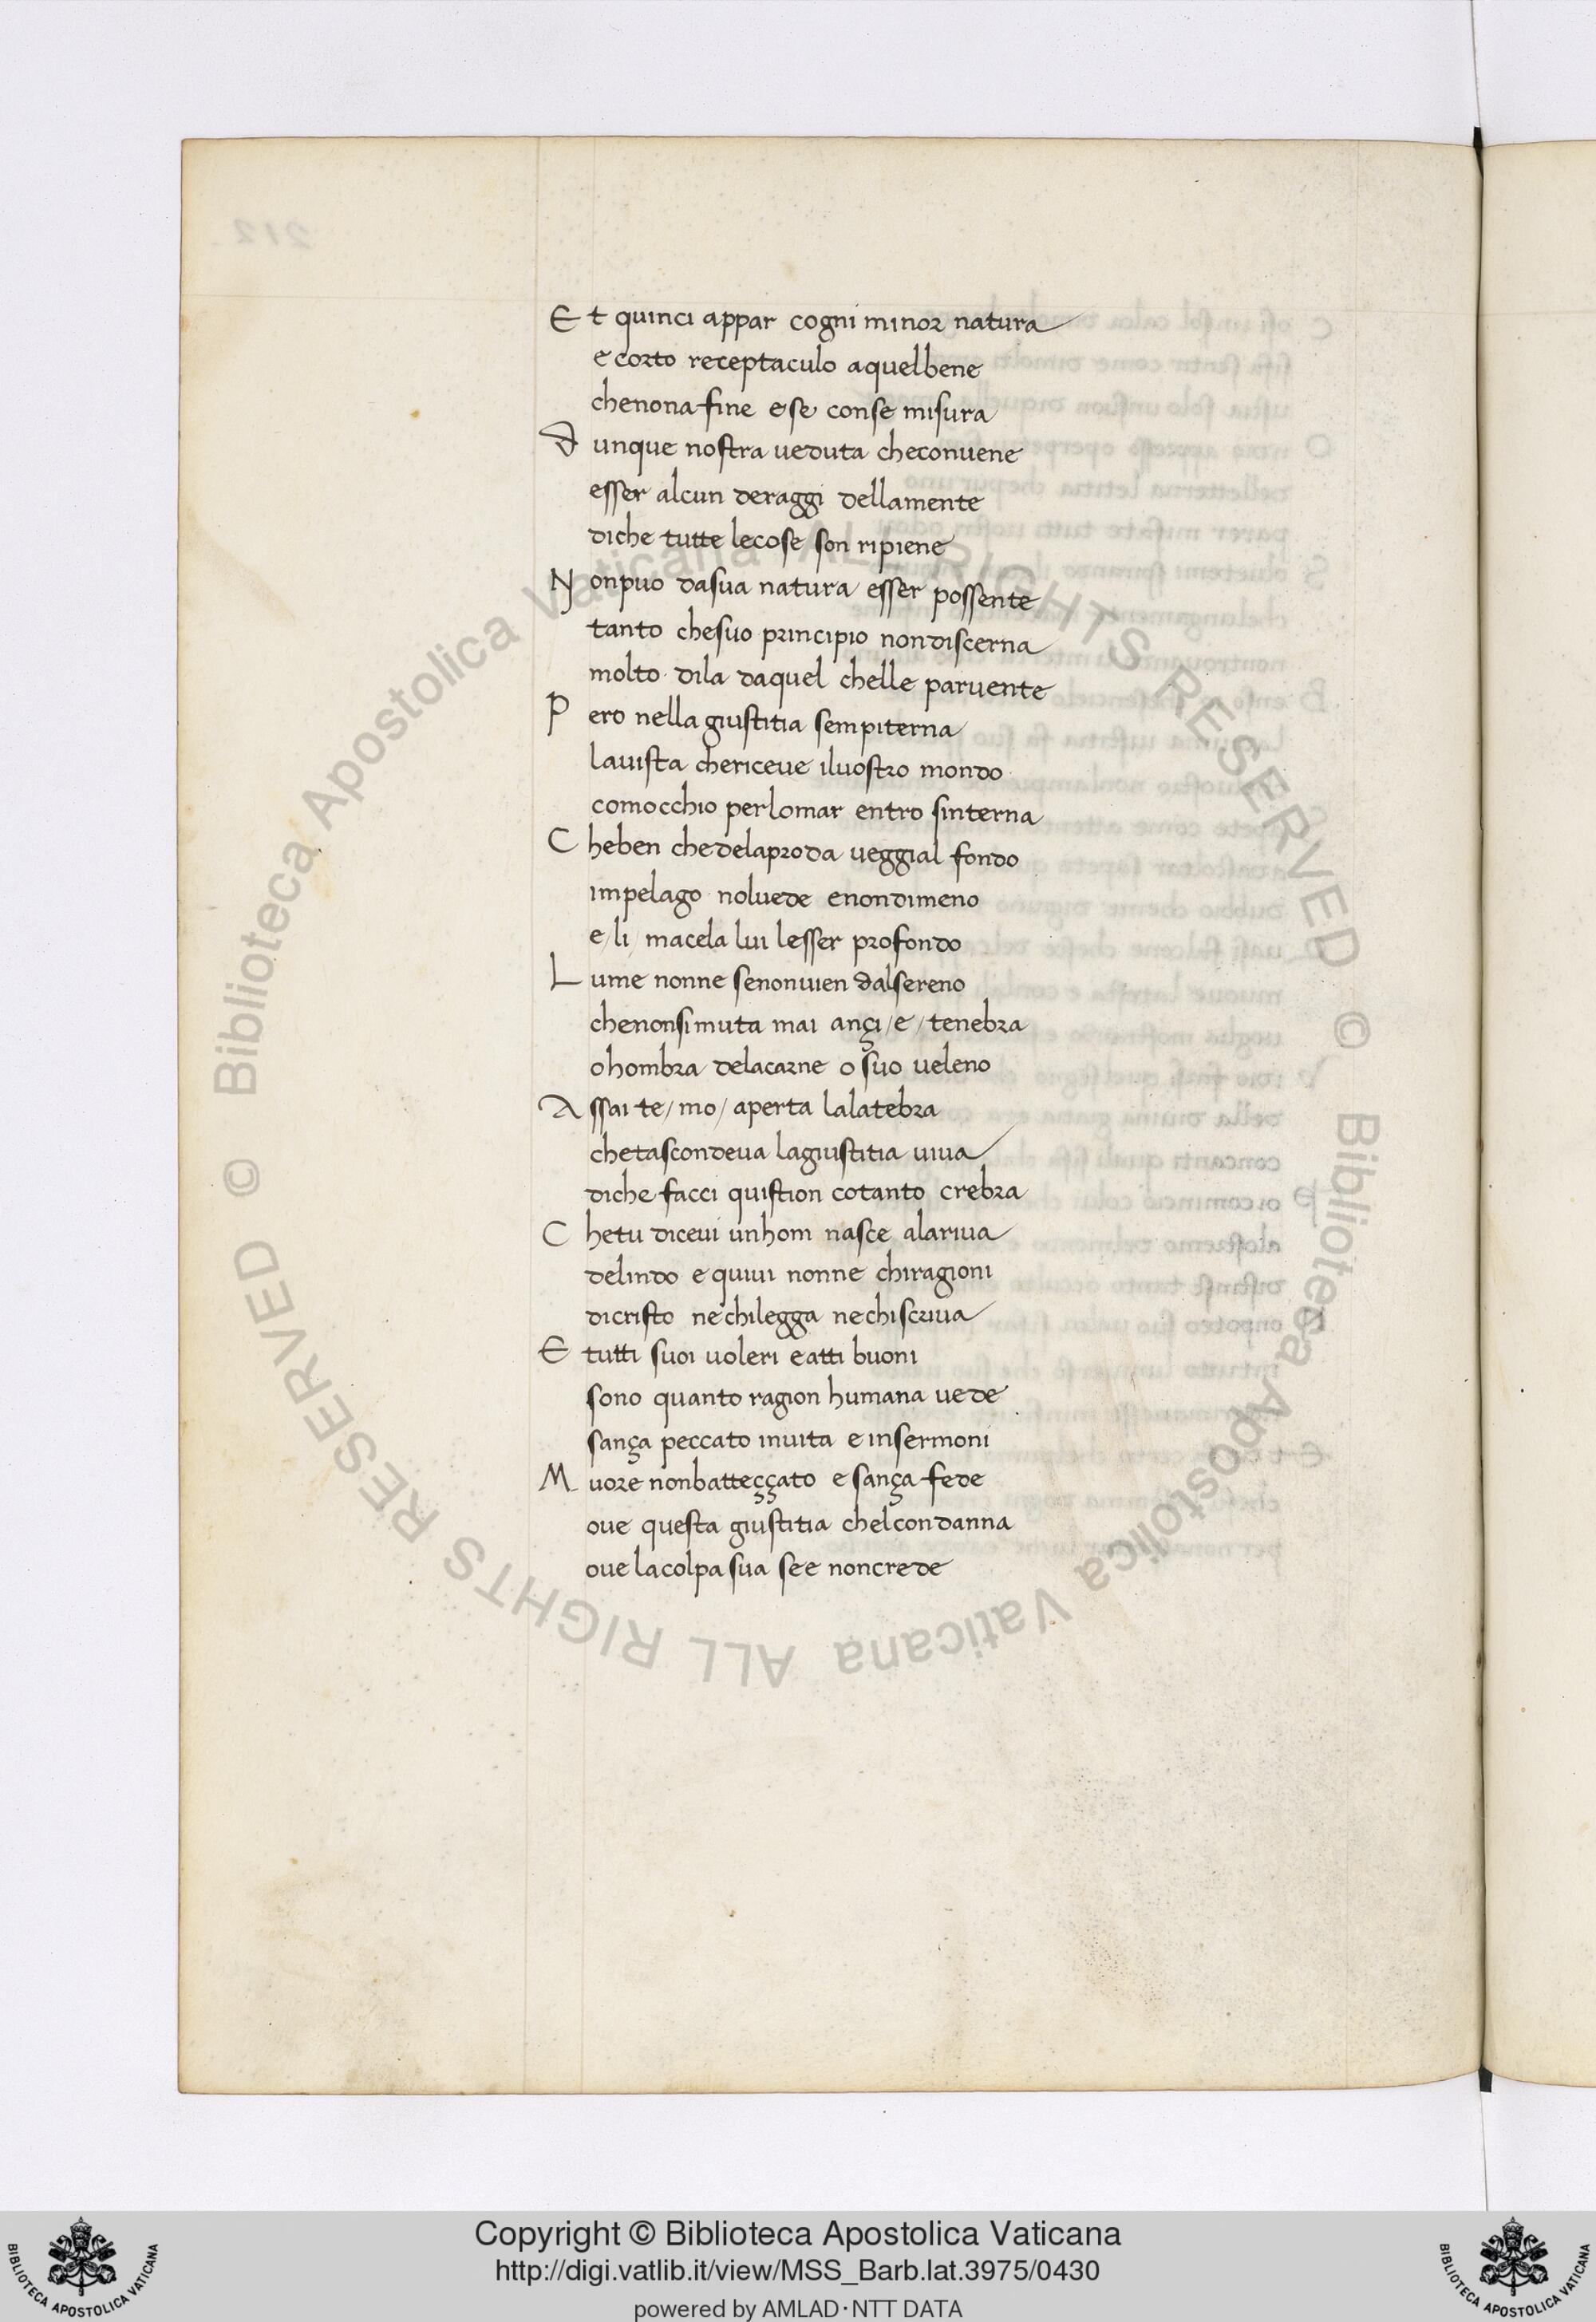 Et quinci appar cogni minor natura
e corto receptaculo aquelbene
chenona fine ese conse misura
Dunque nostra veduta checonvene
esser alcun deraggi dellamente
diche tutte lecose son ripiene
Nonpuo dasua natura esser possente
tanto chesuo principio nondiscerna
molto dila daquel chelle parvente
Pero nella giustitia sempiterna
lavista chericeve ilvostro mondo
comocchio perlomar entro sinterna
Cheben chedelaproda veggial fondo
impelago nolvede enondimeno
e/li/ macela lui lesser profondo
Lume nonne senonvien dalsereno
chenonsimuta mai ançi/e/tenebra
ohombra delacarne o suo veleno
Assai te/mo/ aperta lalatebra
chetascondeva lagiustitia viva
diche facci quistion cotanto crebra
Chetu dicevi unhom nasce alariva
delindo e quivi nonne chiragioni
dicristo nechilegga nechiscriva
E tutti suoi voleri eatti buoni
sono quanto ragion humana vede
sança peccato invita e insermoni
Muore nonbatteççato e sança fede
ove questa giustitia chelcondanna
ove lacolpa sua see noncrede
212
© Biblioteca Apostolica Vaticana ALL RIGHTS RESERVED © Biblioteca Apostolica Vaticana ALL RIGHTS RESERVED
Copyright © Biblioteca Apostolica Vaticana
http://digi.vatlib.it/view/MSS_Barb.lat.3975/0430
powered by AMLAD·NTT DATA
BIBLIOTECA APOSTOLICA VATICANA
BIBLIOTECA APOSTOLICA VATICANA